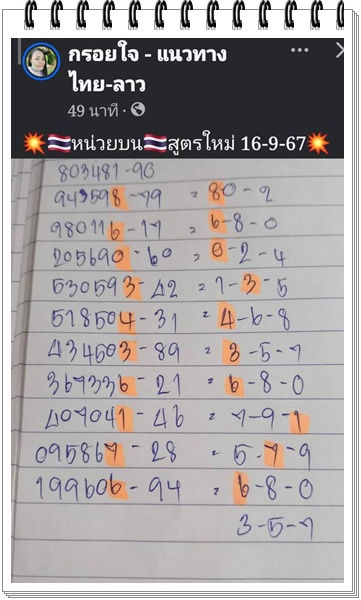 กรอยใจ - แนวทาง
ไทย-ลาว
49 นาที ·
💥🇹🇭หน่วยบน🇹🇭สูตรใหม่ 16-9-67💥
803481-90
943598-79 = 80-2
980116-17 = 6-8-0
205690-60 = 0-2-4
530593-42 = 1-3-5
518504-31 = 4-6-8
434503-89 = 3-5-7
367336-21 = 6-8-0
407041-46 = 7-9-1
095867-28 = 5-7-9
199606-94 = 6-8-0
3-5-7